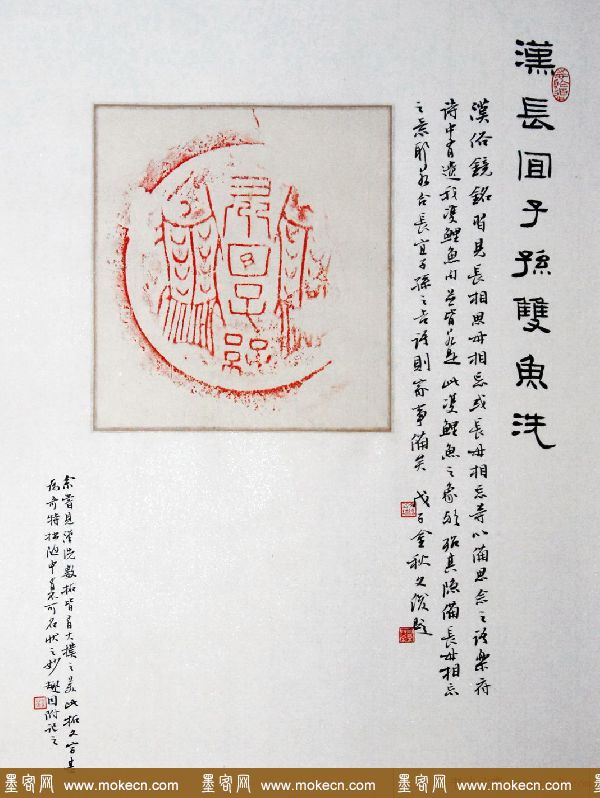 漢長宜子孫雙魚洗
漢俗鏡銘習見長相思毋相忘或長毋相忘等以備思念之語樂府
詩中有遺我雙鯉魚此雙鯉魚之象拓真隱備長毋相忘
之意耶合長宜子孫之吉語則事備矣 戊子金秋文俊題
長宜子孫
余嘗見漢洗數拓皆有大樸之美此拓文字甚
為奇特拙陋中有不可名狀之妙趣因附記之
墨客网 www.mokecn.com 墨客网 www.mokecn.com 墨客网 www.mokecn.com 墨客网